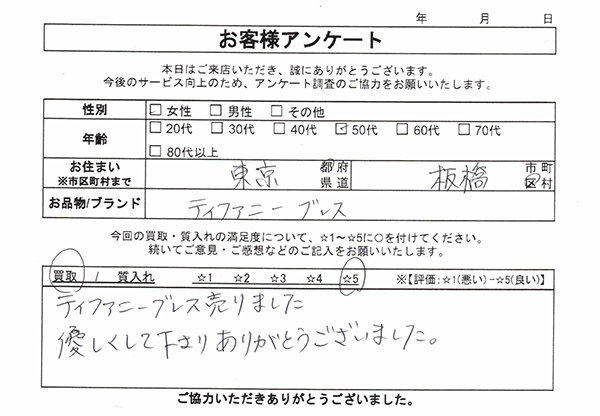 年 月 日
お客様アンケート
本日はご来店いただき、誠にありがとうございます。
今後のサービス向上のため、アンケート調査のご協力をお願いいたします。
性別 女性 男性 その他
年齢 20代 30代 40代 50代 60代 70代
80代以上
お住まい ※市区町村まで 東京 都府県道 板橋 市町区村
お品物/ブランド ティファニー ブレス
今回の買取・質入れの満足度について、☆1～☆5に○を付けてください。
続いてご意見・ご感想などのご記入をお願いいたします。
買取 / 質入れ ☆1 ☆2 ☆3 ☆4 ☆5 ※【評価:☆1(悪い)-☆5(良い)】
ティファニーブレス売りました
優しくして下さりありがとうございました。
ご協力いただきありがとうございました。